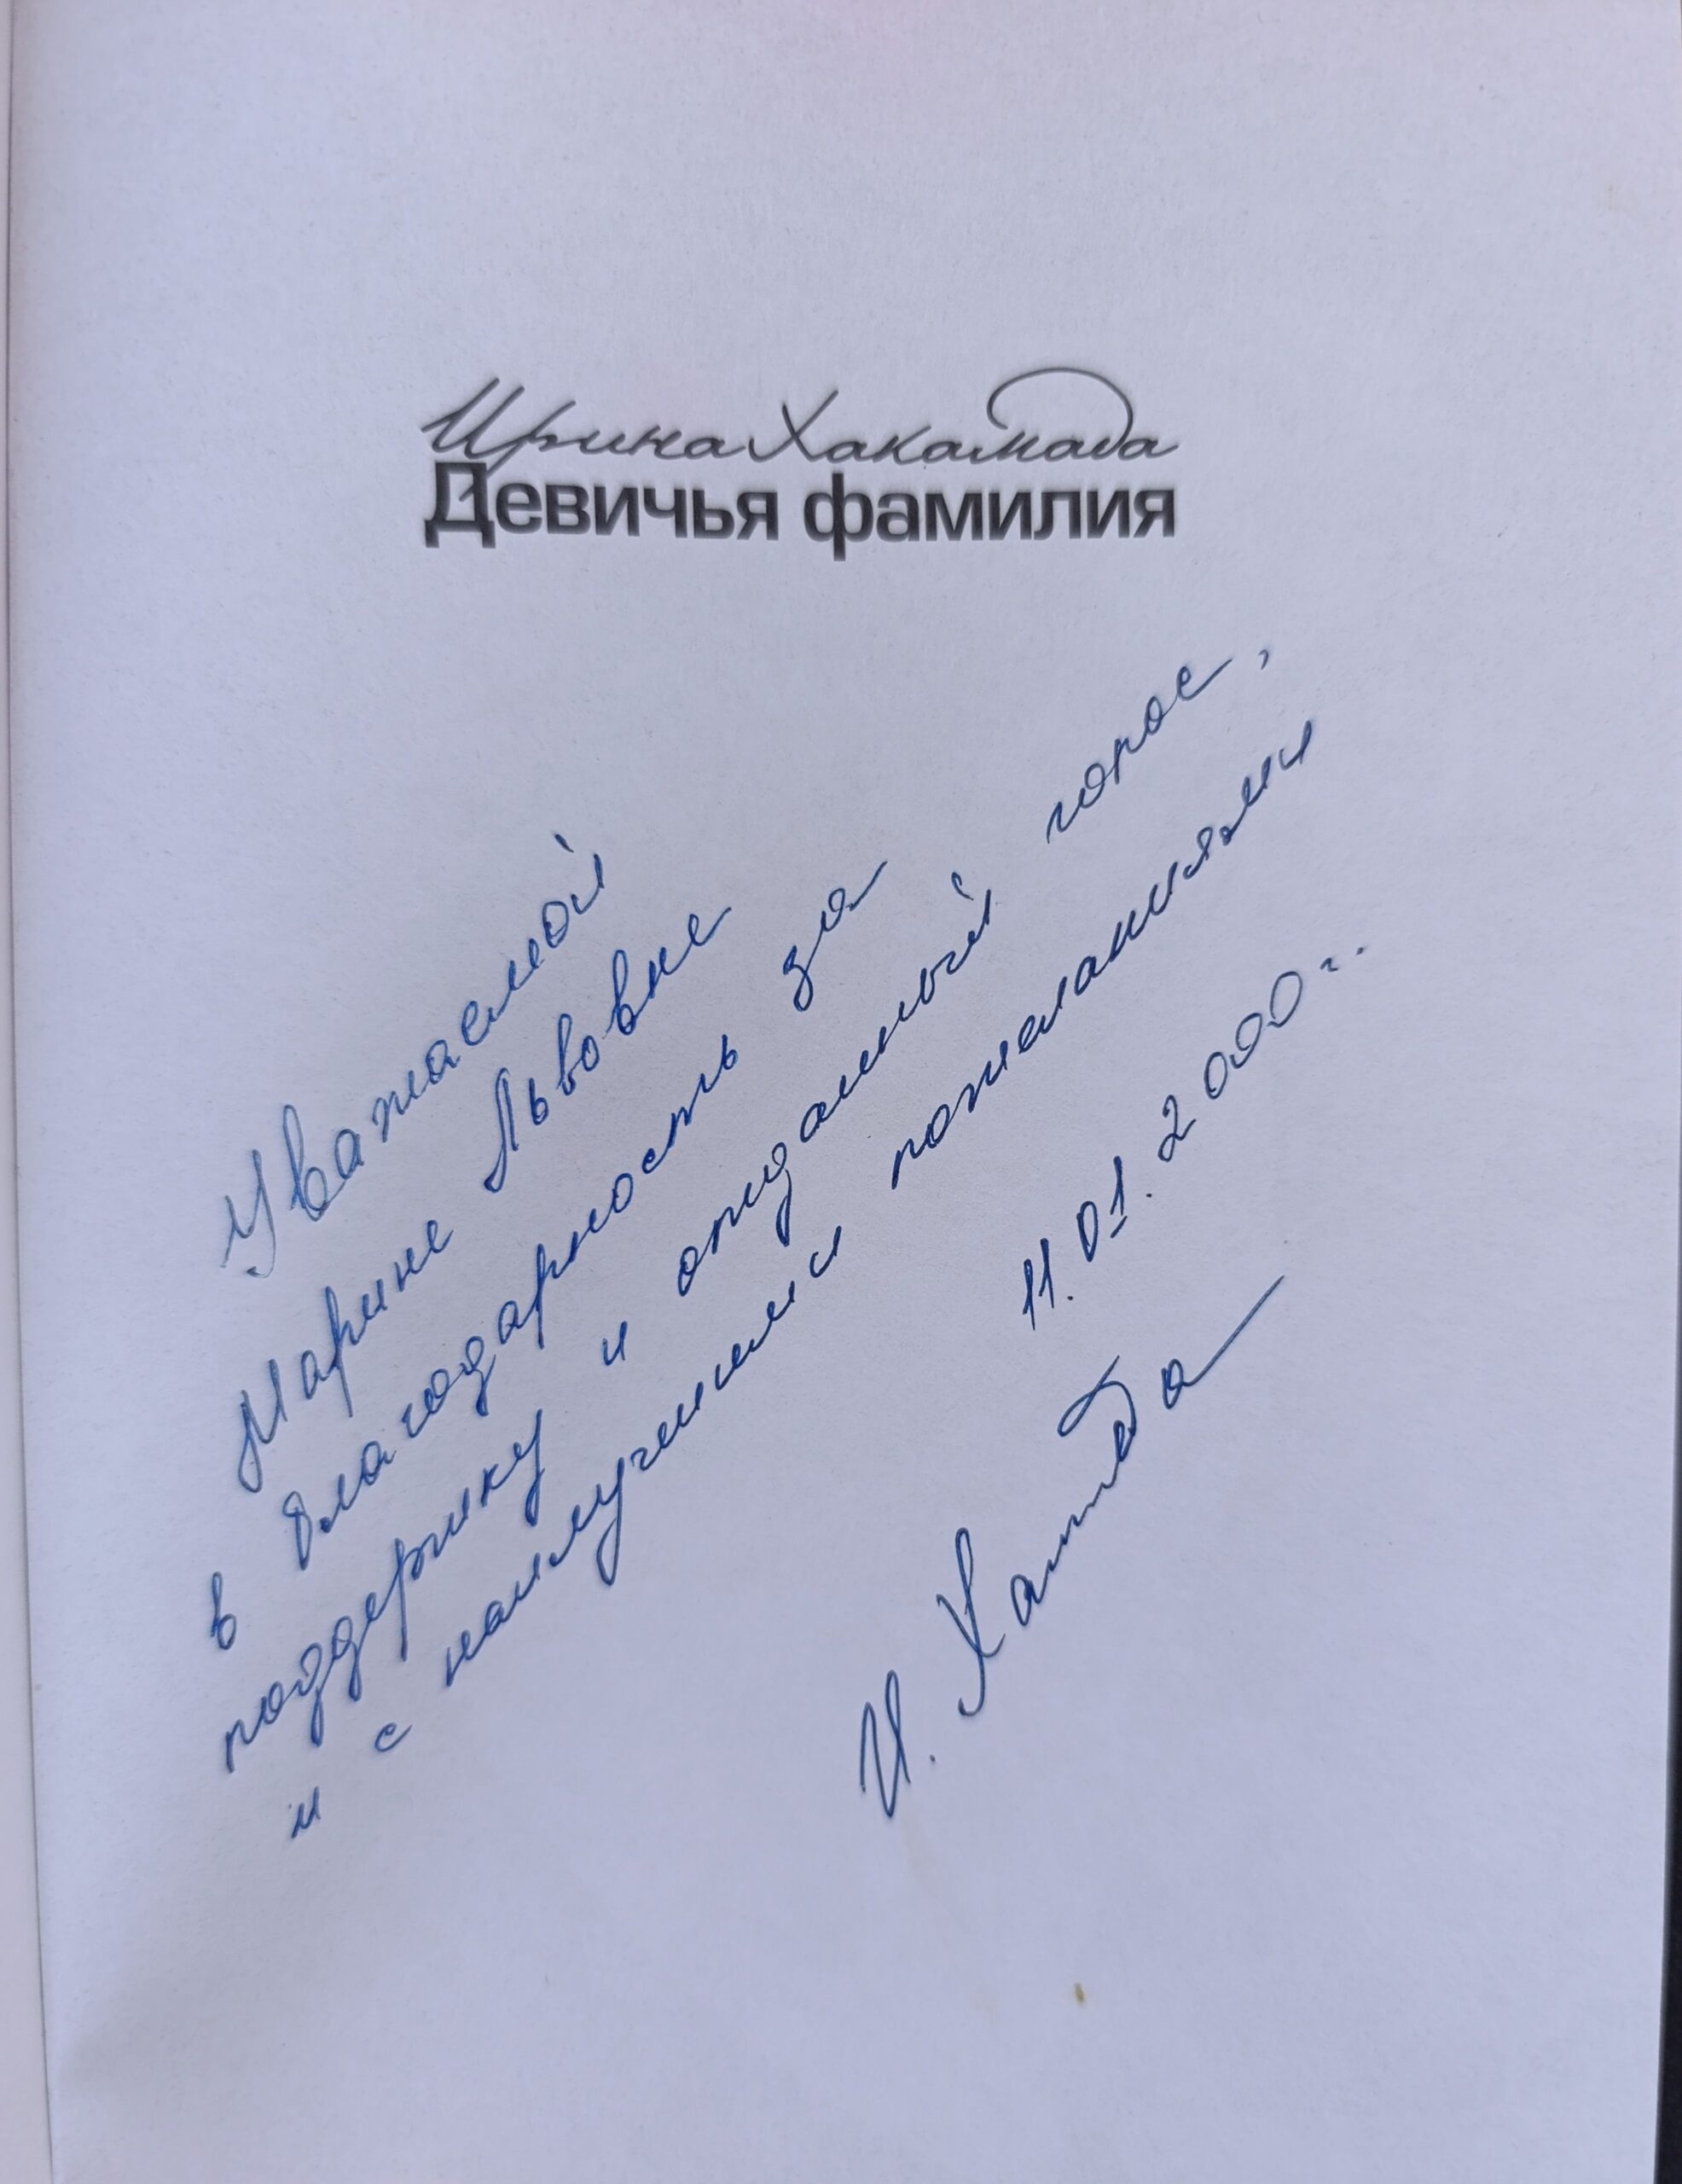 Ирина Хакамада
Девичья фамилия
Уважаемой
Марине Львовне
в благодарность за
поддержку и отданный голос,
и с наилучшими пожеланиями
11.01.2000 г.
И. Хакамада